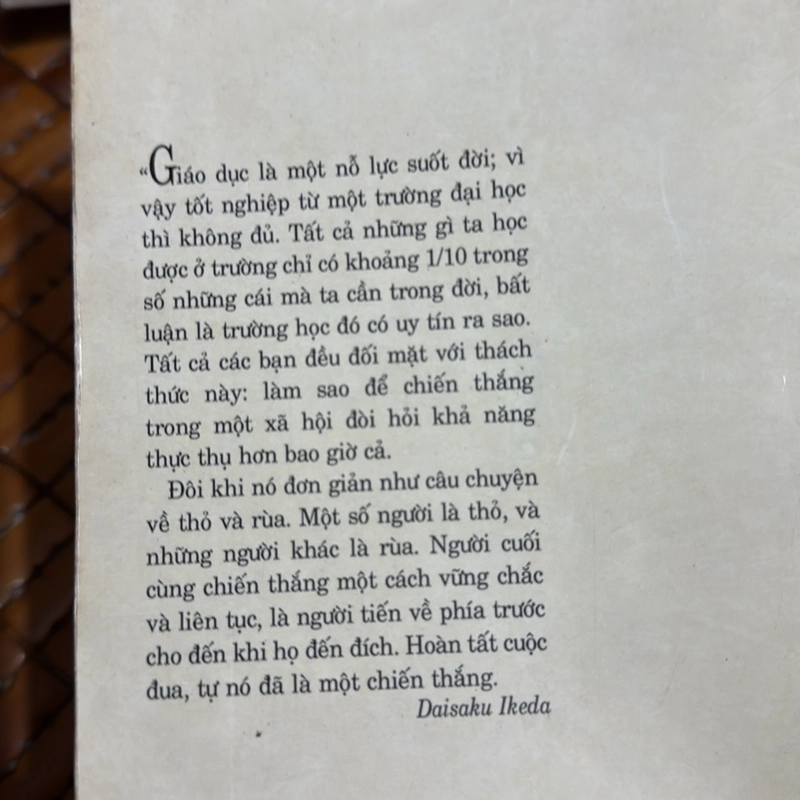 “Giáo dục là một nỗ lực suốt đời; vì
vậy tốt nghiệp từ một trường đại học
thì không đủ. Tất cả những gì ta học
được ở trường chỉ có khoảng 1/10 trong
số những cái mà ta cần trong đời, bất
luận là trường học đó có uy tín ra sao.
Tất cả các bạn đều đối mặt với thách
thức này: làm sao để chiến thắng
trong một xã hội đòi hỏi khả năng
thực thụ hơn bao giờ cả.
Đôi khi nó đơn giản như câu chuyện
về thỏ và rùa. Một số người là thỏ, và
những người khác là rùa. Người cuối
cùng chiến thắng một cách vững chắc
và liên tục, là người tiến về phía trước
cho đến khi họ đến đích. Hoàn tất cuộc
đua, tự nó đã là một chiến thắng.
Daisaku Ikeda